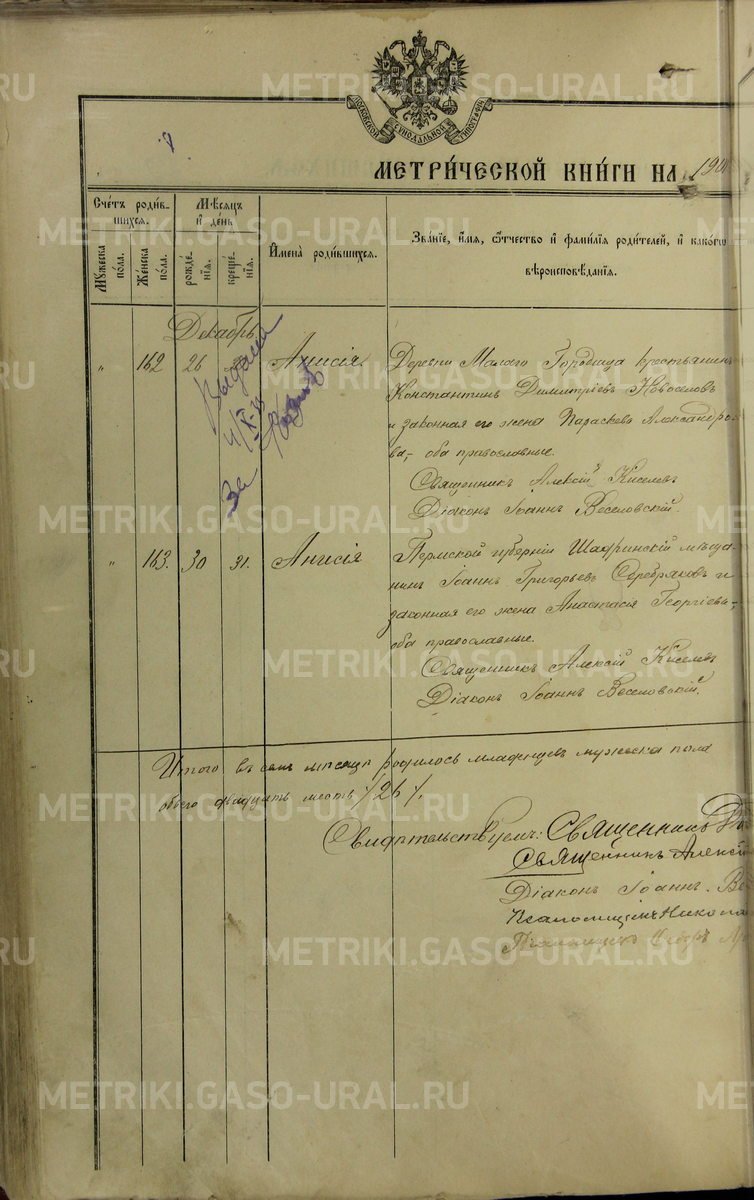 МОСКОВСКОЙ СѴНОДАЛЬНОЙ ТИПОГРАФІИ
МЕТРИ́ЧЕСКОЙ КНИ́ГИ НА 190
Сче́тъ роди́в-
шихся.
Мѣ́сяцъ
и̑ де́нь
Му́жеска
по́ла.
Же́нска
по́ла.
рожде́-
нїя.
креще́-
нїя.
И̑мена̀ роди́вшихся.
Зва́нїе, и̑́мя, ѻ̑́тчество и̑ фами́лїя роди́телей, и̑ како́гѡ
вѣроисповѣ́данїя.
Декабрь
„ 162 26 Анисія.
Деревни Малого Городища крестьянинъ
Константинъ Димитріевъ Новоселовъ
и законная его жена Параскева Александро-
ва,- оба православные.
Священникъ Алексій Киселевъ
Діаконъ Іоаннъ Веселовскій.
Выдана
4/X
за
„ 163. 30 31. Анисія
Пермской губерніи Шадринскій мѣща-
нинъ Іоаннъ Григорьевъ Серебряковъ и
законная его жена Анастасія Георгіева,-
оба православные.
Священникъ Алексій Киселевъ
Діаконъ Іоаннъ Веселовскій.
Итого въ семъ мѣсяцѣ родилось младенцевъ мужеска пола
обоего двадцать шесть /26/.
Свидѣтельствуемъ: Священникъ
Священникъ Алексій
Діаконъ Іоаннъ Ве
Псаломщикъ Никола
Псаломщикъ
METRIKI.GASO-URAL.RU